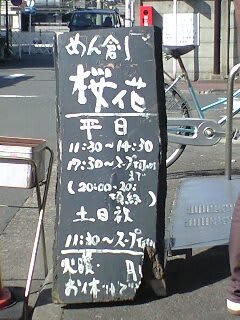 めん創
桜花
平日
11:30～14:30
17:30～スープ
まで
(20:00～20:
土日祝
11:30～スープ
火曜
お休み